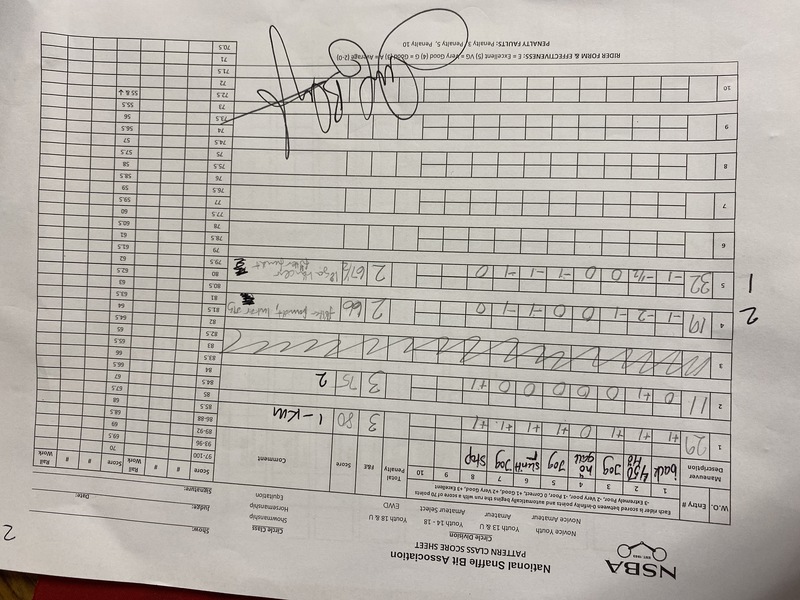 2
NSBA
EST 1983
National Snaffle Bit Association
PATTERN CLASS SCORE SHEET
Circle Division
Novice Youth Youth 13 & U Youth 14 - 18 Youth 18 & U
Novice Amateur Amateur Amateur Select EWD
Circle Class
Showmanship
Horsemanship
Equitation
Show:
Judge:
Date:
Signature:
Each rider is scored between 0-Infinity points and automatically begins the run with a score of 70 points
-3 Extremely Poor, -2 Very Poor, -1 Poor, 0 Correct, +1 Good, +2 Very Good, +3 Excellent
W.O. Entry # Maneuver Description 1 2 3 4 5 6 7 8 9 10 Penalty Total F&E Score Comment
back 450 Jog Jog Jog Stop
1 29 +1 +1 +1 0 +1 +1 +1 +1 3 80 1-
2 11 0 +1 0 0 0 0 0 +1 3 75 2
3
2 4 19 -1 -2 -1 0 0 -1 -1 0 2 66
1 5 32 -1 -1½ 0 0 -1 -1 -1 0 2 67½
6
7
8
9
10
RIDER FORM & EFFECTIVENESS: E = Excellent (5) VG = Very Good (4) G = Good (3) A = Average (2-0)
PENALTY FAULTS: 3 Penalty, 5 Penalty, 10 Penalty
Score # # Rail Work Score # # Rail Work
97-100
93-96
89-92
86-88
85.5
85
84.5
84
83.5
83
82.5
82
81.5
81
80.5
80
79.5
79
78.5
78
77.5
77
76.5
76
75.5
75
74.5
74
73.5
73
72.5
72
71.5
71
70.5
70
69.5
69
68.5
68
67.5
67
66.5
66
65.5
65
64.5
64
63.5
63
62.5
62
61.5
61
60.5
60
59.5
59
58.5
58
57.5
57
56.5
56
55.5
55 & ↓